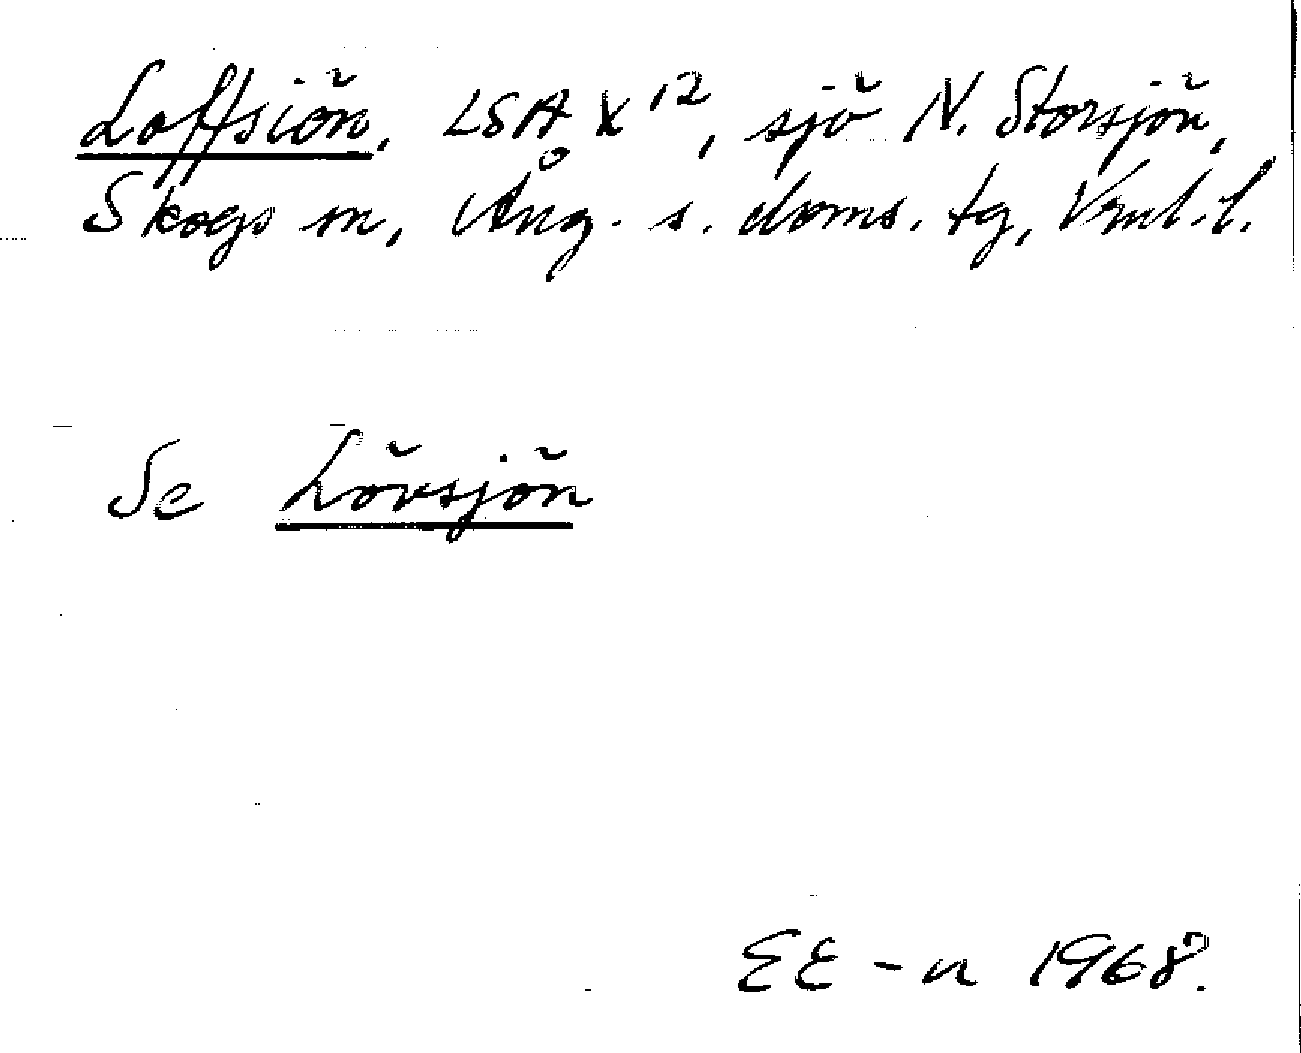 Loffsiön, LSA X 12, sjö N. Storsjön,
Skogs sn, Ång. s. doms. tg, Vrml. l.
Se Lövsjön
EE-n 1968.